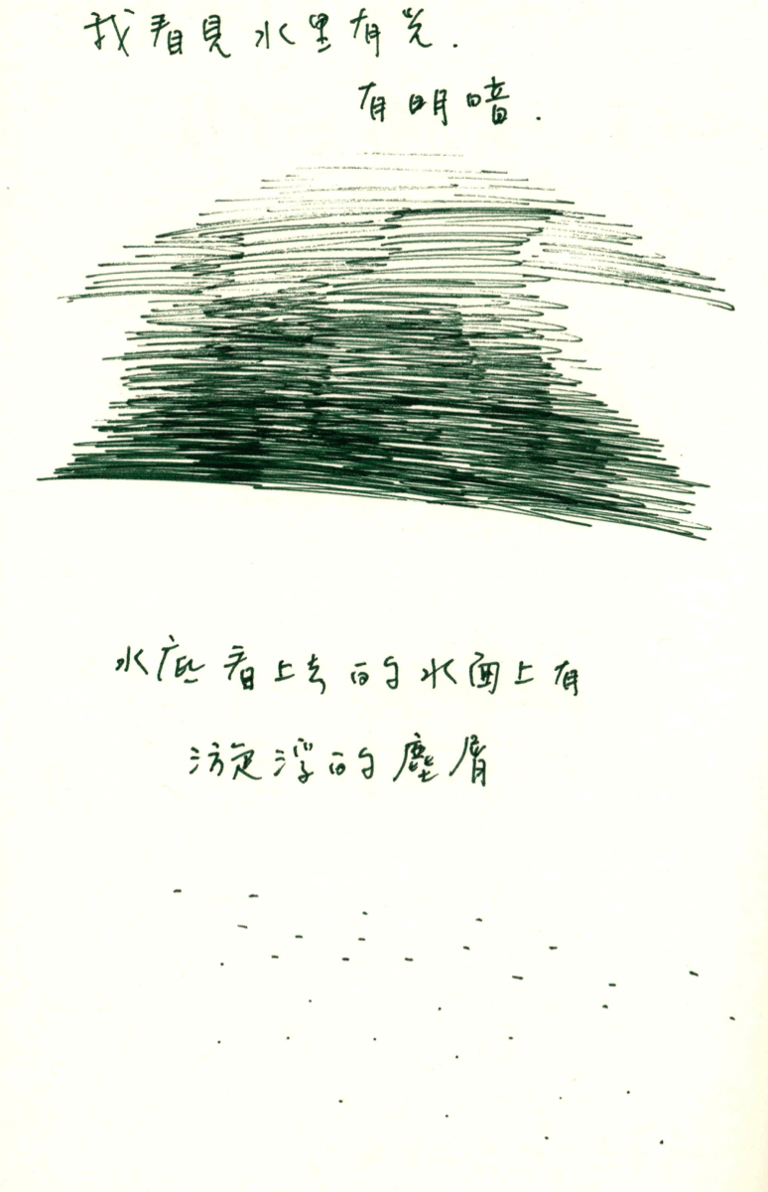 我看見水里有光.
有明暗.
水底看上去的水面上有
漩浮的塵屑